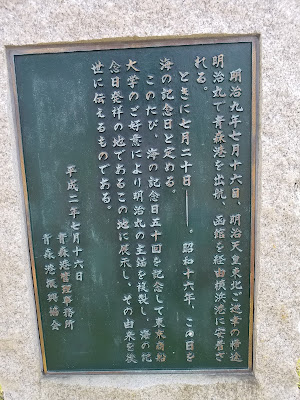 明治九年七月十六日、明治天皇東北ご巡幸の帰途
明治丸で青森港を出航 函館を経由横浜港に安着さ
れる。
ときに七月二十日――。昭和十六年、この日を
海の記念日と定める。
このたび、海の記念日五十回を記念して東京商船
大学のご好意により明治丸の主錨を複製し、海の記
念日発祥の地であるこの地に展示し、その由来を後
世に伝えるものである。
平成二年七月十六日
青森港管理事務所
青森港振興協会